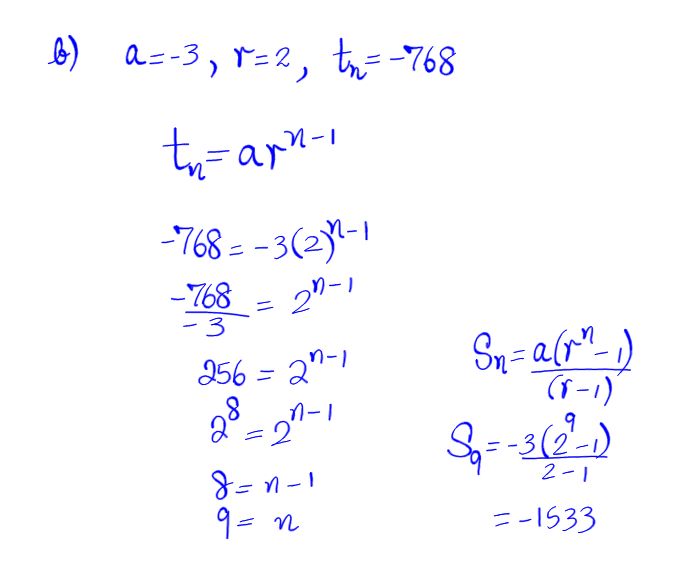 b) a=-3, r=2, tₙ=-768
tₙ=arⁿ⁻¹
-768=-3(2)ⁿ⁻¹
-768/-3 = 2ⁿ⁻¹
256 = 2ⁿ⁻¹
2⁸ = 2ⁿ⁻¹
8 = n-1
9 = n
Sₙ = a(rⁿ-1)/(r-1)
S₉ = -3(2⁹-1)/2-1
= -1533